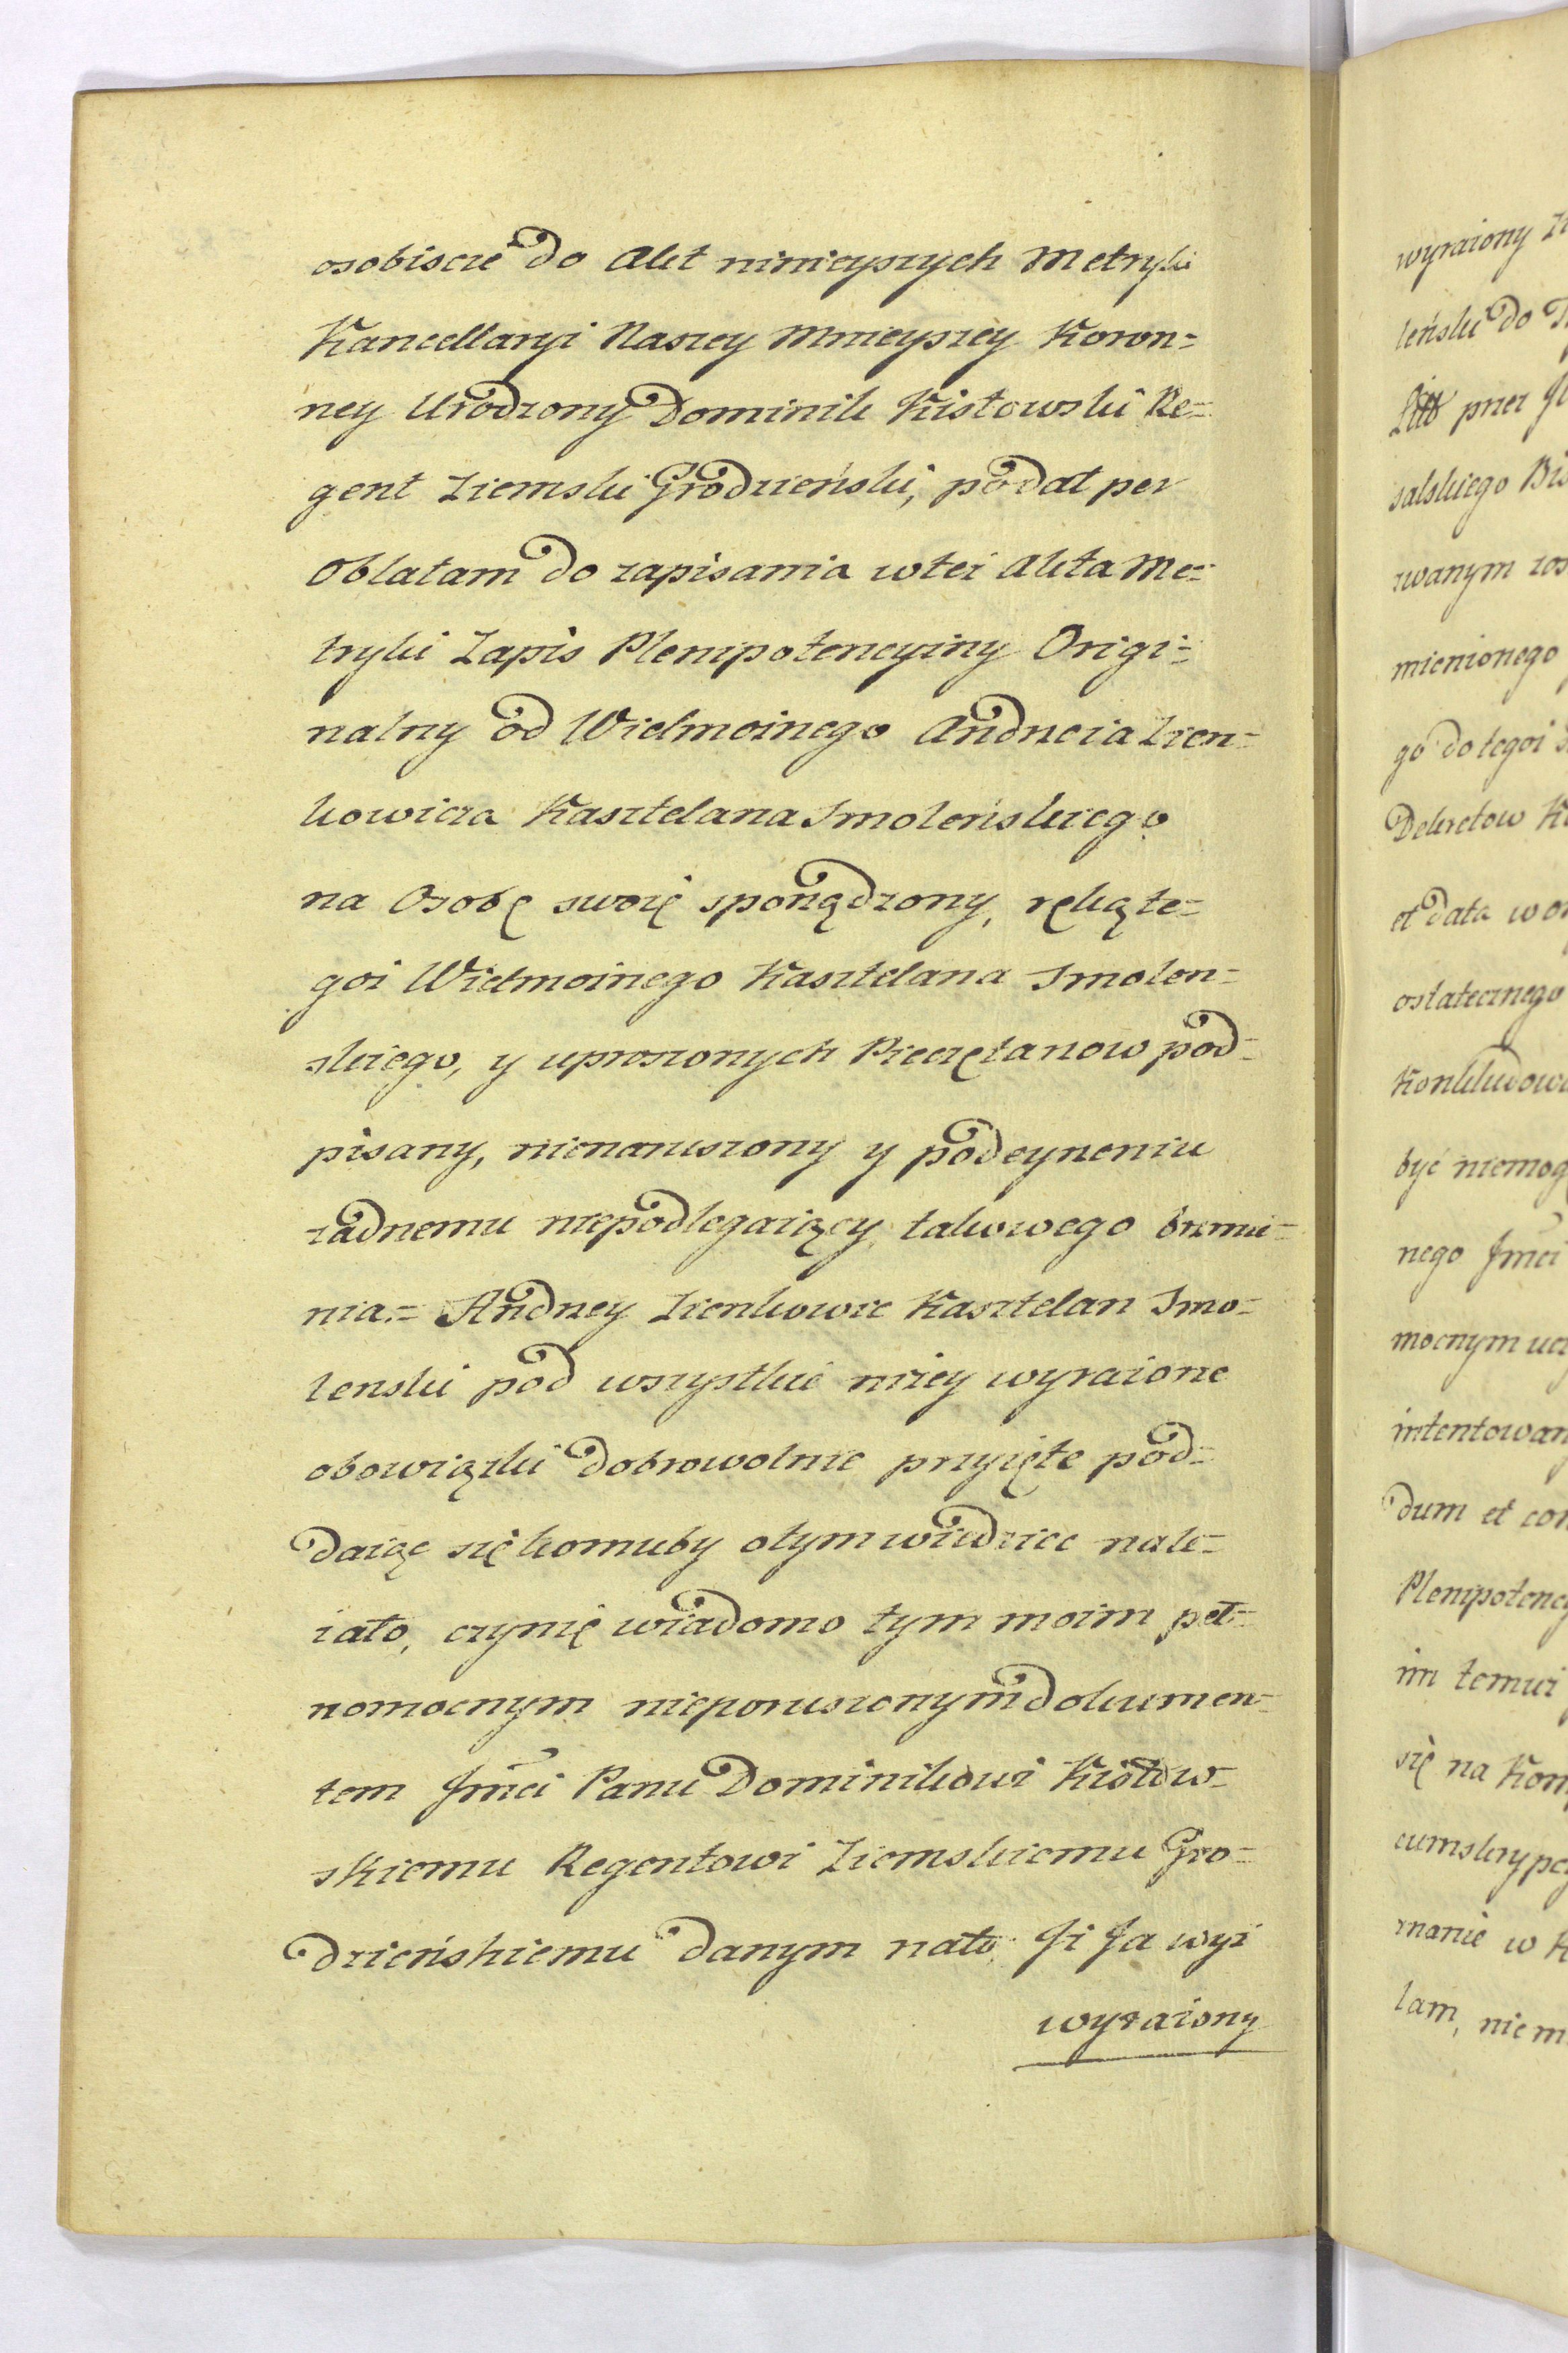 osobiscie do Akt ninieyszych Metryki
Kancellaryi Naszey Mnieyszey Koron=
ney Urodzony Dominik Kistowski Re=
gent Ziemski Grodzieński, podał per
Oblatam do zapisania wteż Akta Me=
tryki Zapis Plenipotencyiny Origi=
nalny od Wielmożnego Andrzeia Zien=
kowicza Kasztelana Smoleńskiego
na Osobę swoię sporządzony, ręką te=
goż Wielmożnego Kasztelana Smolen=
skiego, y uproszonych Pieczętarzow pod=
pisany, nienaruszony y podeyrzeniu
żadnemu niepodlegaiący, takowego brzmie=
nia.= Andrzey Zienkowic Kasztelan Smo=
lenski pod wszystkie niżey wyrażone
obowiązki dobrowolnie przyięte pod=
daiąc się komuby otym wiedziec nale=
żało, czynię wiadomo tym moim peł=
nomocnym nieporuszonym dokumen=
tem Jmći Panu Dominikowi Kistow=
skiemu Regentowi Ziemskiemu Gro=
dzieńskiemu danym nato Iż Ja wyż
wyrażony
wyrażony
leński do
przez
salskiego
zwanym
mienionego
go do tegoż
Dekretow
et data
ostatecznego
być niemog
nego Jmći
mocnym
intentowan
dum et con
Plenipotency
im temuż
się na Kom
cumskrypc
znanie w K
lam, niem